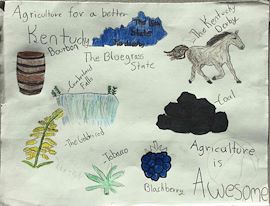 Agriculture for a better
Kentucky
The Kentucky
Derby
Bourbon
The Bluegrass
State
Cumberland
Falls
-Coal
-The Goldenrod
-Tobacco
Blackberry
Agriculture
is
Awesome